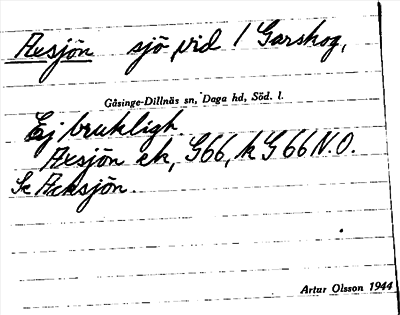 Axsjön sjö vid 1 Garskog,
Gåsinge-Dillnäs sn, Daga hd, Söd. l.
Ej brukligh
Axsjön ek, G66, k G66 N.O.
Se Acksjön.
Artur Olsson 1944